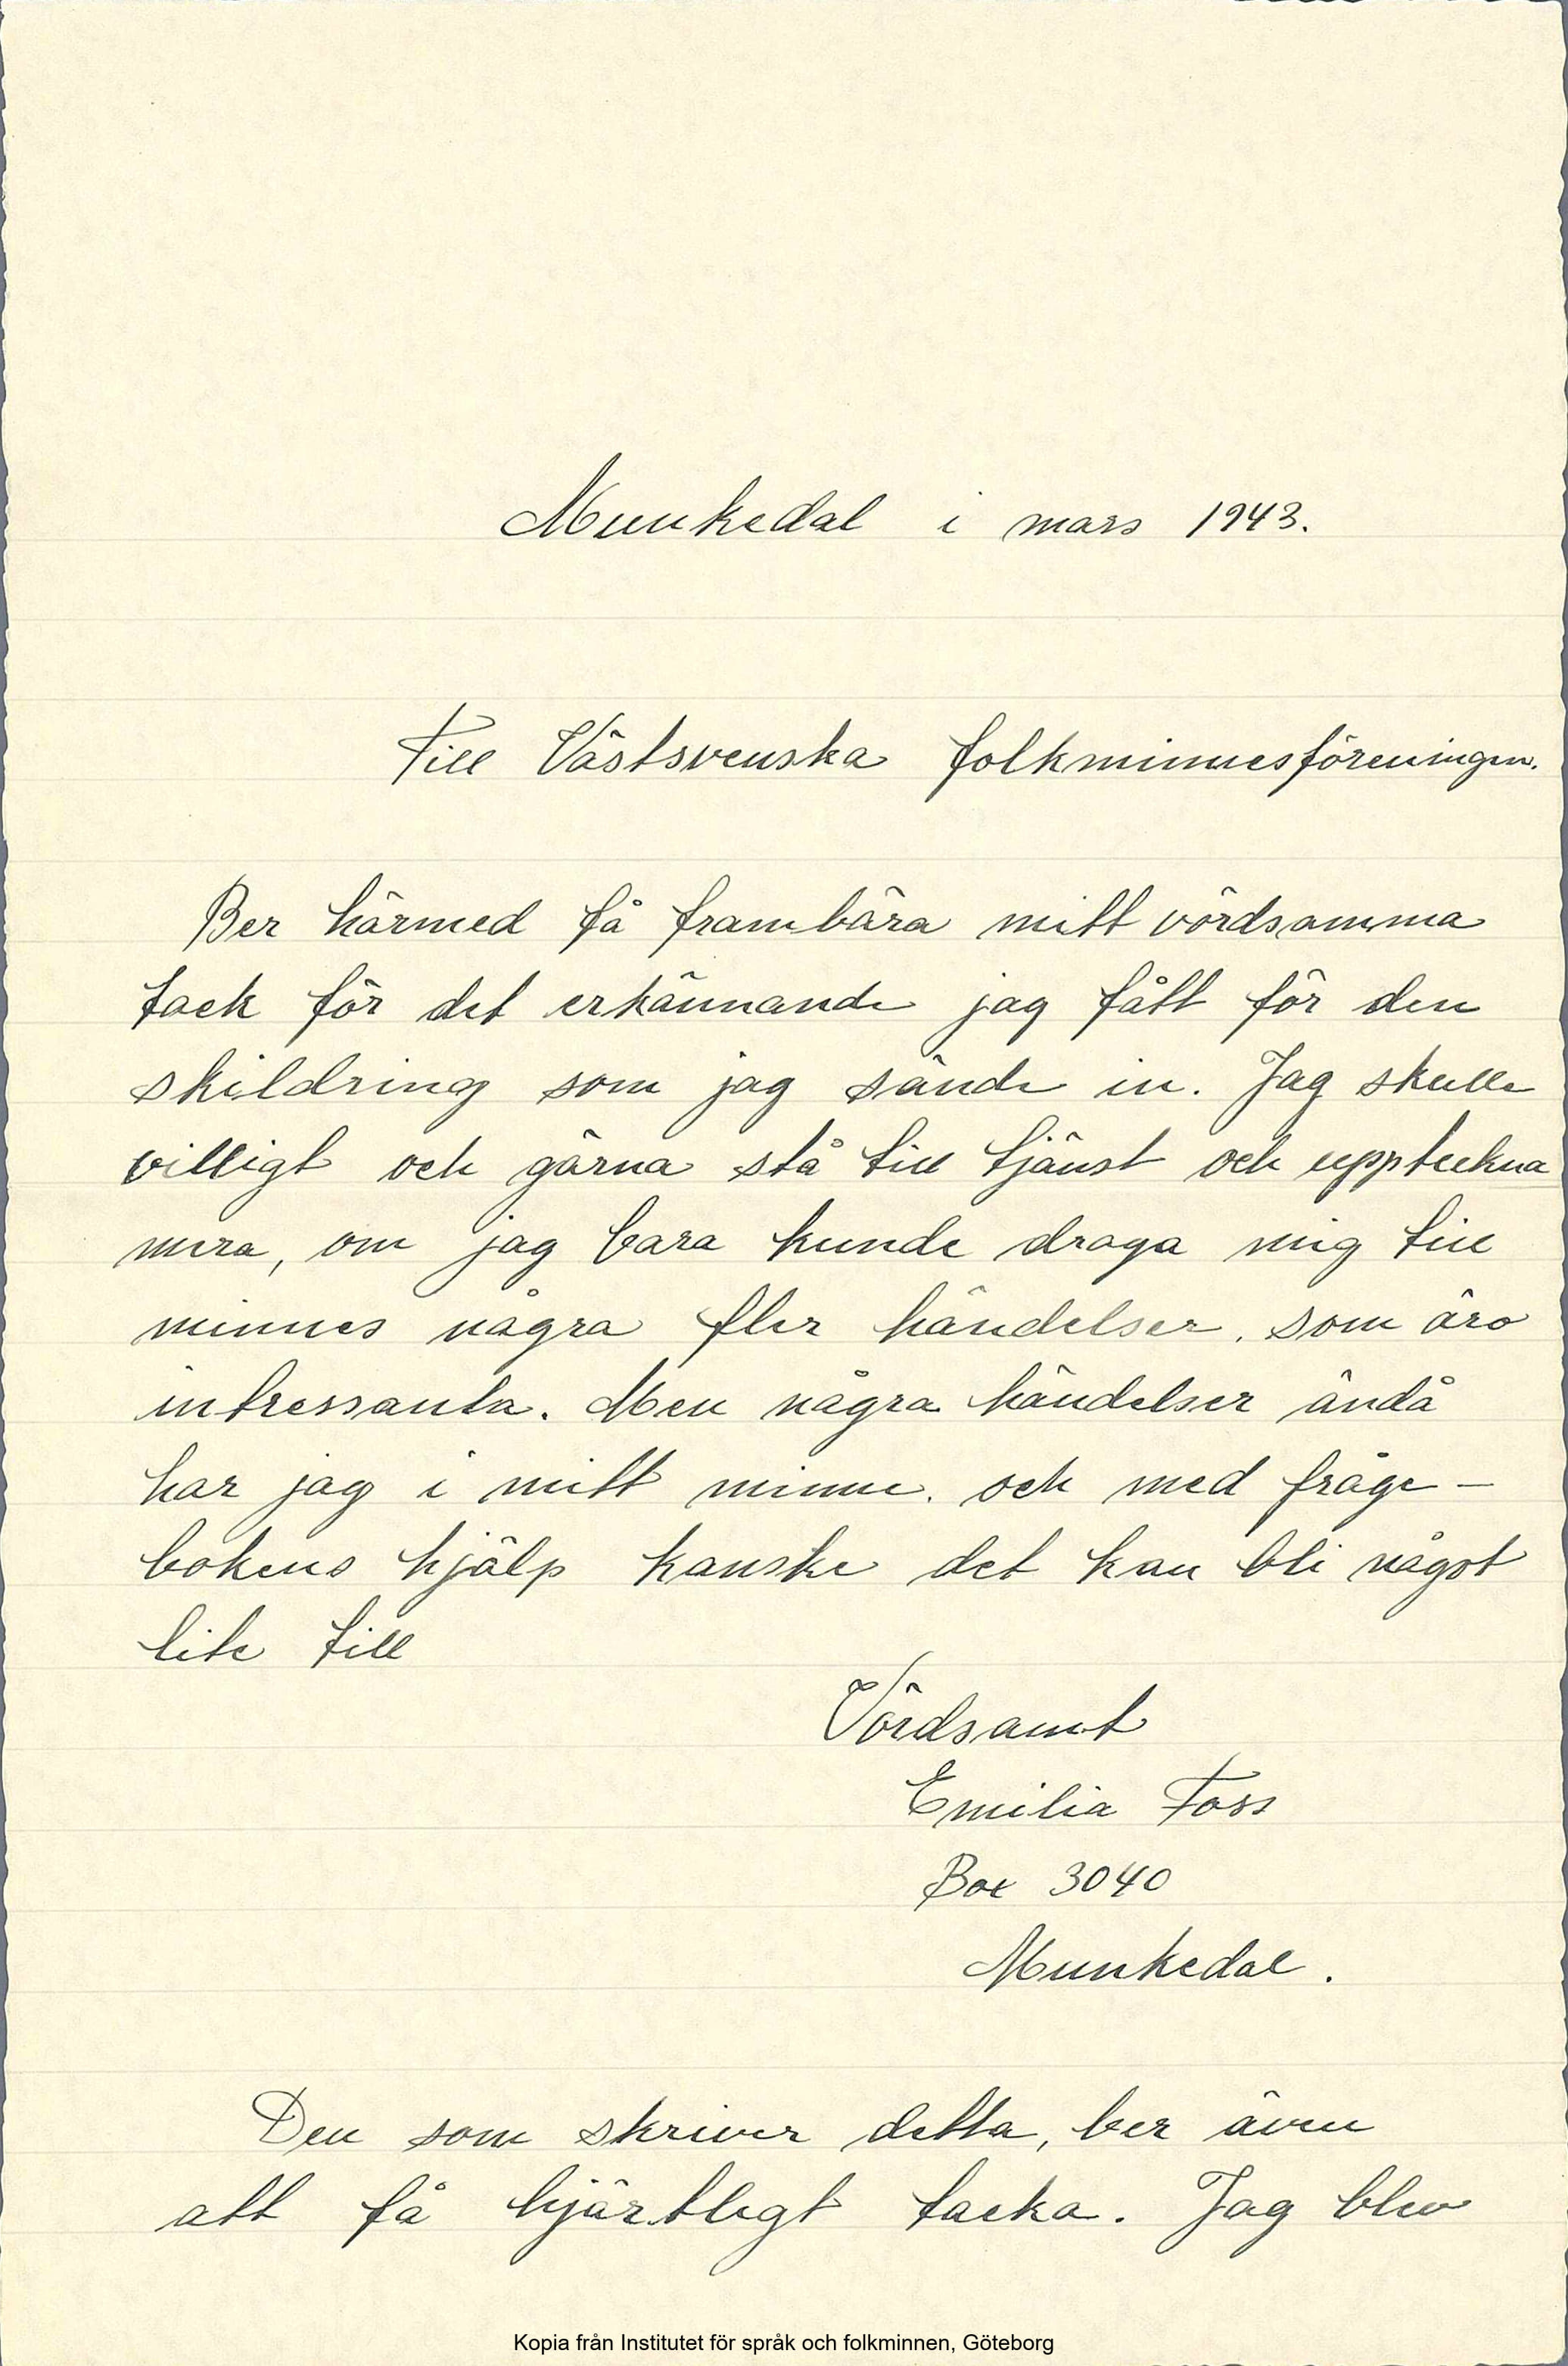 Munkedal i mars 1943.
Till Västsvenska folkminnesföreningen.
Ber härmed få frambära mitt vördsamma
tack för det erkännande jag fått för den
skildring som jag sände in. Jag skulle
villigt och gärna stå till tjänst och uppteckna
mera, om jag bara kunde draga mig till
minnes några fler händelser, som äro
intressanta. Men några händelser ändå
har jag i mitt minne, och med fråge-
bokens hjälp kanske det kan bli något
lite till
Vördsamt
Emilia Foss
Box 3040
Munkedal.
Den som skriver detta, ber även
att få hjärtligt tacka. Jag blev
Kopia från Institutet för språk och folkminnen, Göteborg